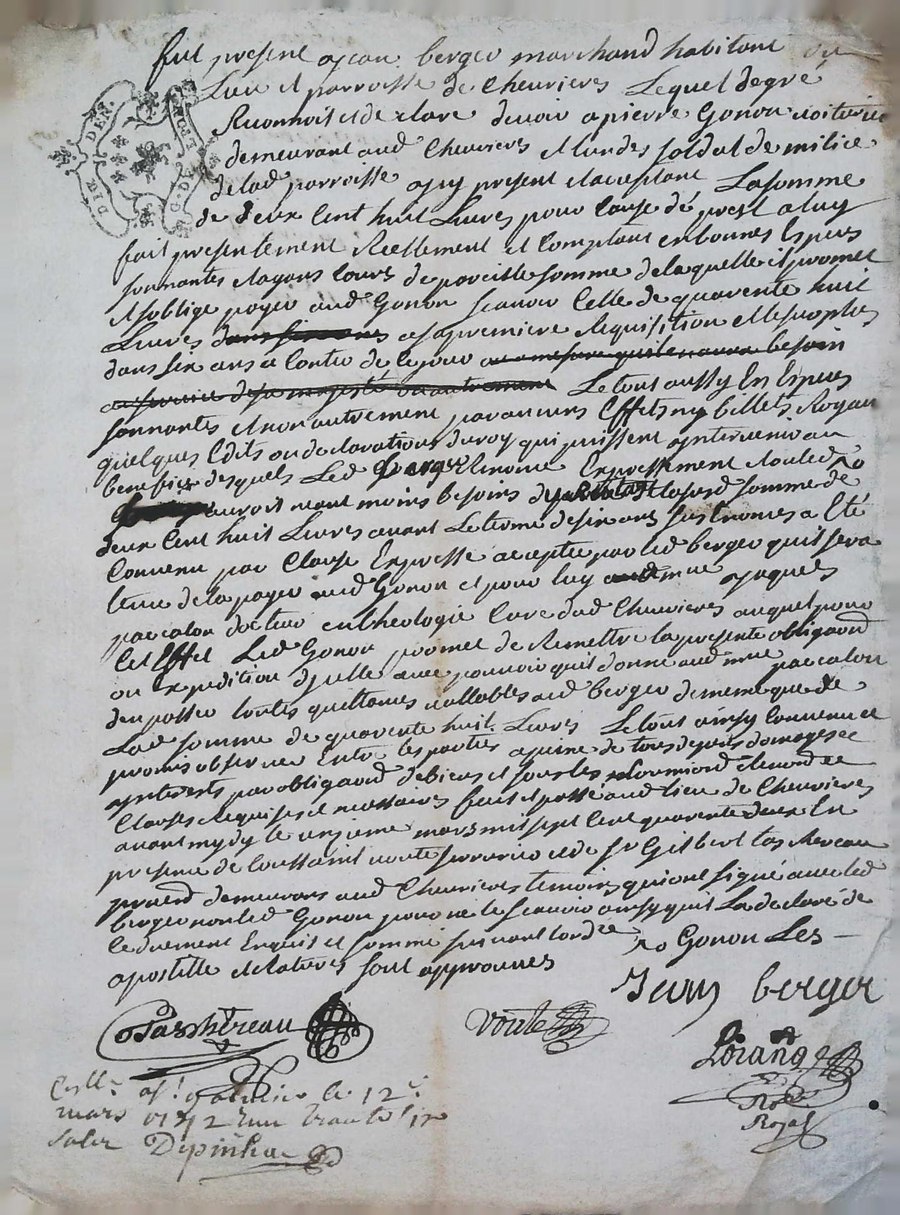 fut present a jean berger marchand habitant du
Lieu et parroisse de Cheuvrieres Lequel degré
Reconnoit et declare devoir a pierre Gonon voiturier
demeurant aud Cheuvrieres et lun des soldat de milice
de lad parroisse a jcy present et acceptant La somme
de deux Cent huit Livres pour Cause de prest a luy
fait presentement Reellement et Comptant en bonnes Espesses
sonnantes et ayans Cours de pareille somme de laquelle il promet
et soblige payer aud Gonon scavoir Celle de quarente huit
Livres dans six ans a sa premiere Requisition et le surplus
dans six ans a Conter de ce jour a mesure quil en aura besoin
au service de sa majesté ou autrement Le tout aussy En Espesses
sonnantes et non autrement par aucuns Effets ny billets Royaux
quelques Edits ou declarations du roy qui puissent yntervenir au
benefice desquels Led berger Renonce Expressement et ou led
auroit neant moins besoins de lad somme de
deux Cent huit Livres avant Le terme de six ans sus nommes a Eté
Convenu par Clause Expresse acceptée par led berger quil sera
tenu de la payer aud Gonon et pour luy a me jaques
pascalon docteur en theologie Curé dud Cheuvrieres auquel pour
Cet Effet Led Gonon promet de Remettre la presente obligaõn
ou Expedition dycelle avec pouvoir quil donne aud me pascalon
den passer toutes quittances vallables aud berger de meme que de
Lad somme de quarente huit Livres Le tout ainsy Convenu et
promis observer Entre les parties a peine de tous depens domages et
ynterests par obligaõn de biens et
Clauses Requises et necessaires fait et passé aud lieu de Cheuvrieres
avant mydy le unzieme mars mil sept Cent quarente deux En
presence de toussaint voute serrurier et de Sr Gilbert
demeurans aud Cheuvrieres temoins qui ont signé avec led
berger non led Gonon pour ne le scavoir ainsy quil La declaré de
ce duement Enquis et sommé suivant lord.ce
apostille et ratures sont approuvees Gonon Les
Jean berger
voute
Royal
mars 1742